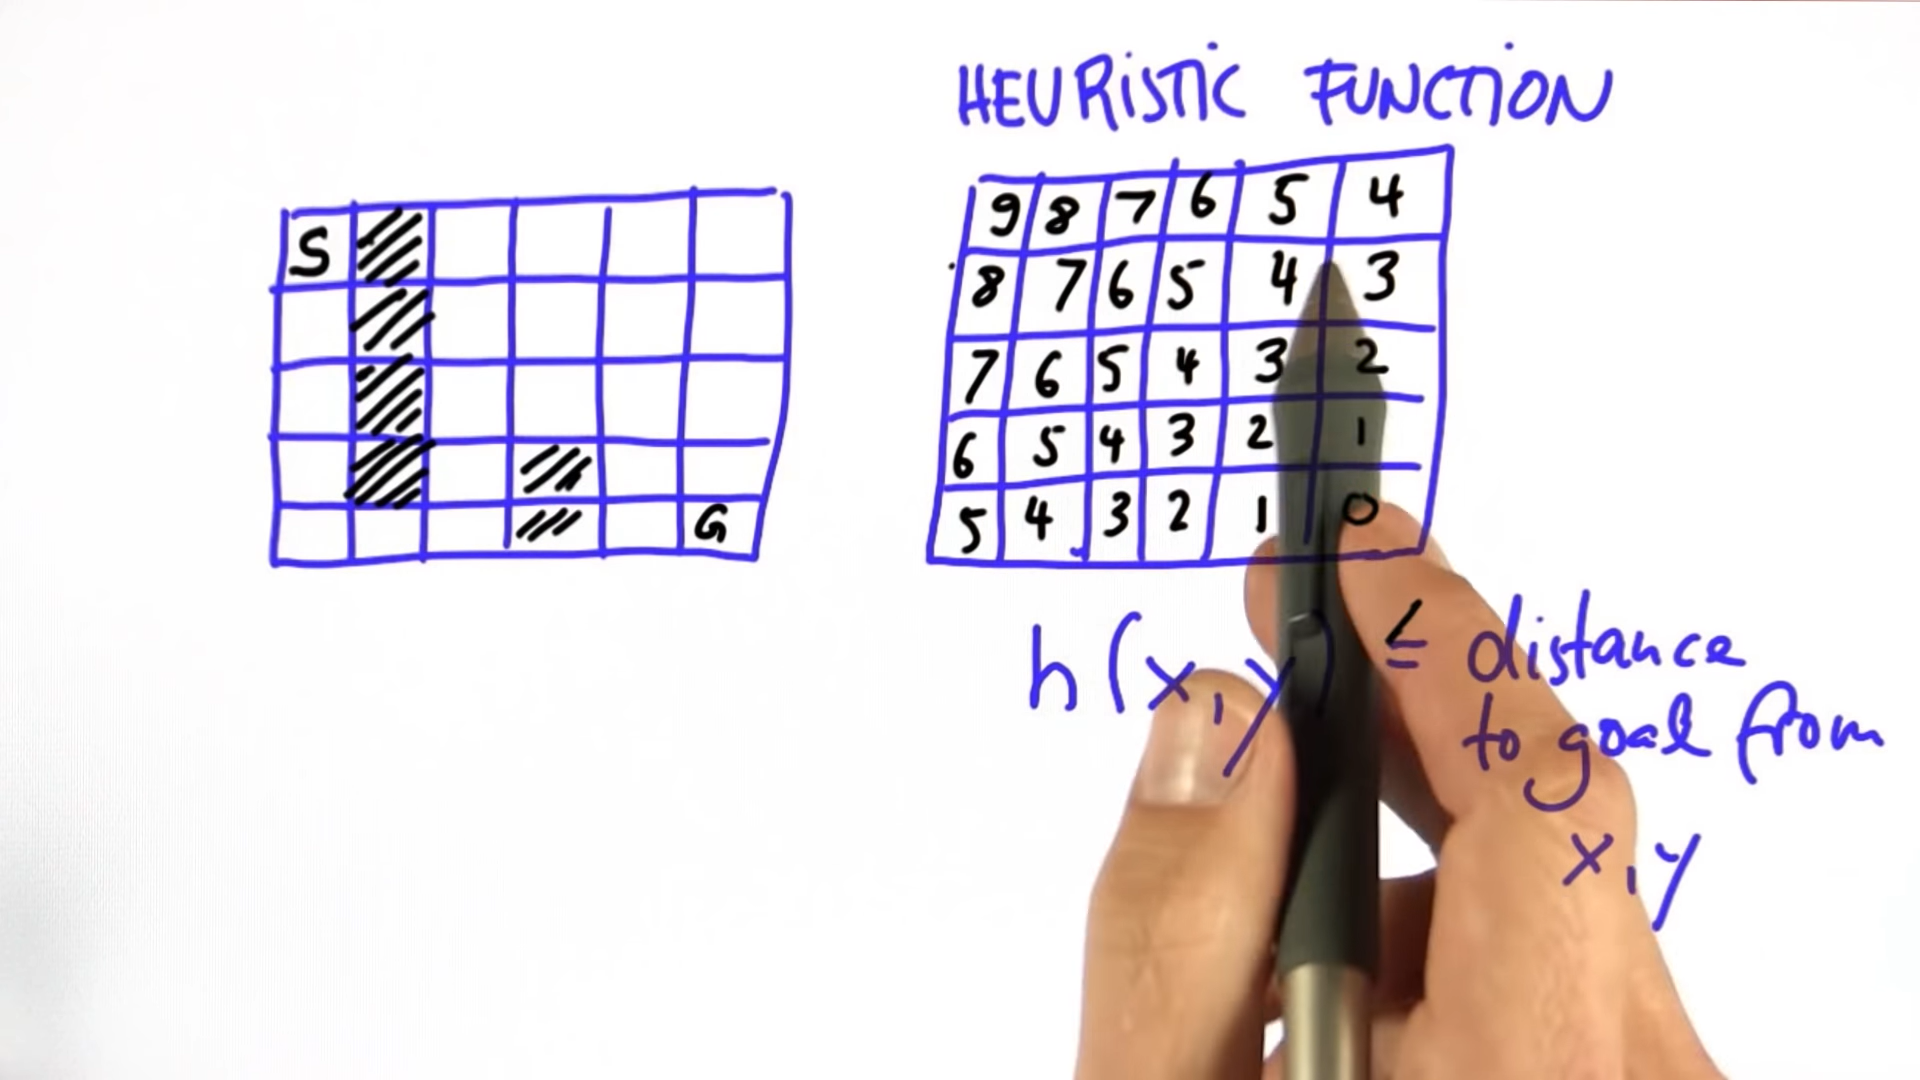 HEURISTIC FUNCTION
S
G
9 8 7 6 5 4
8 7 6 5 4 3
7 6 5 4 3 2
6 5 4 3 2 1
5 4 3 2 1 0
h(x,y) ≤ distance
to goal from
x,y